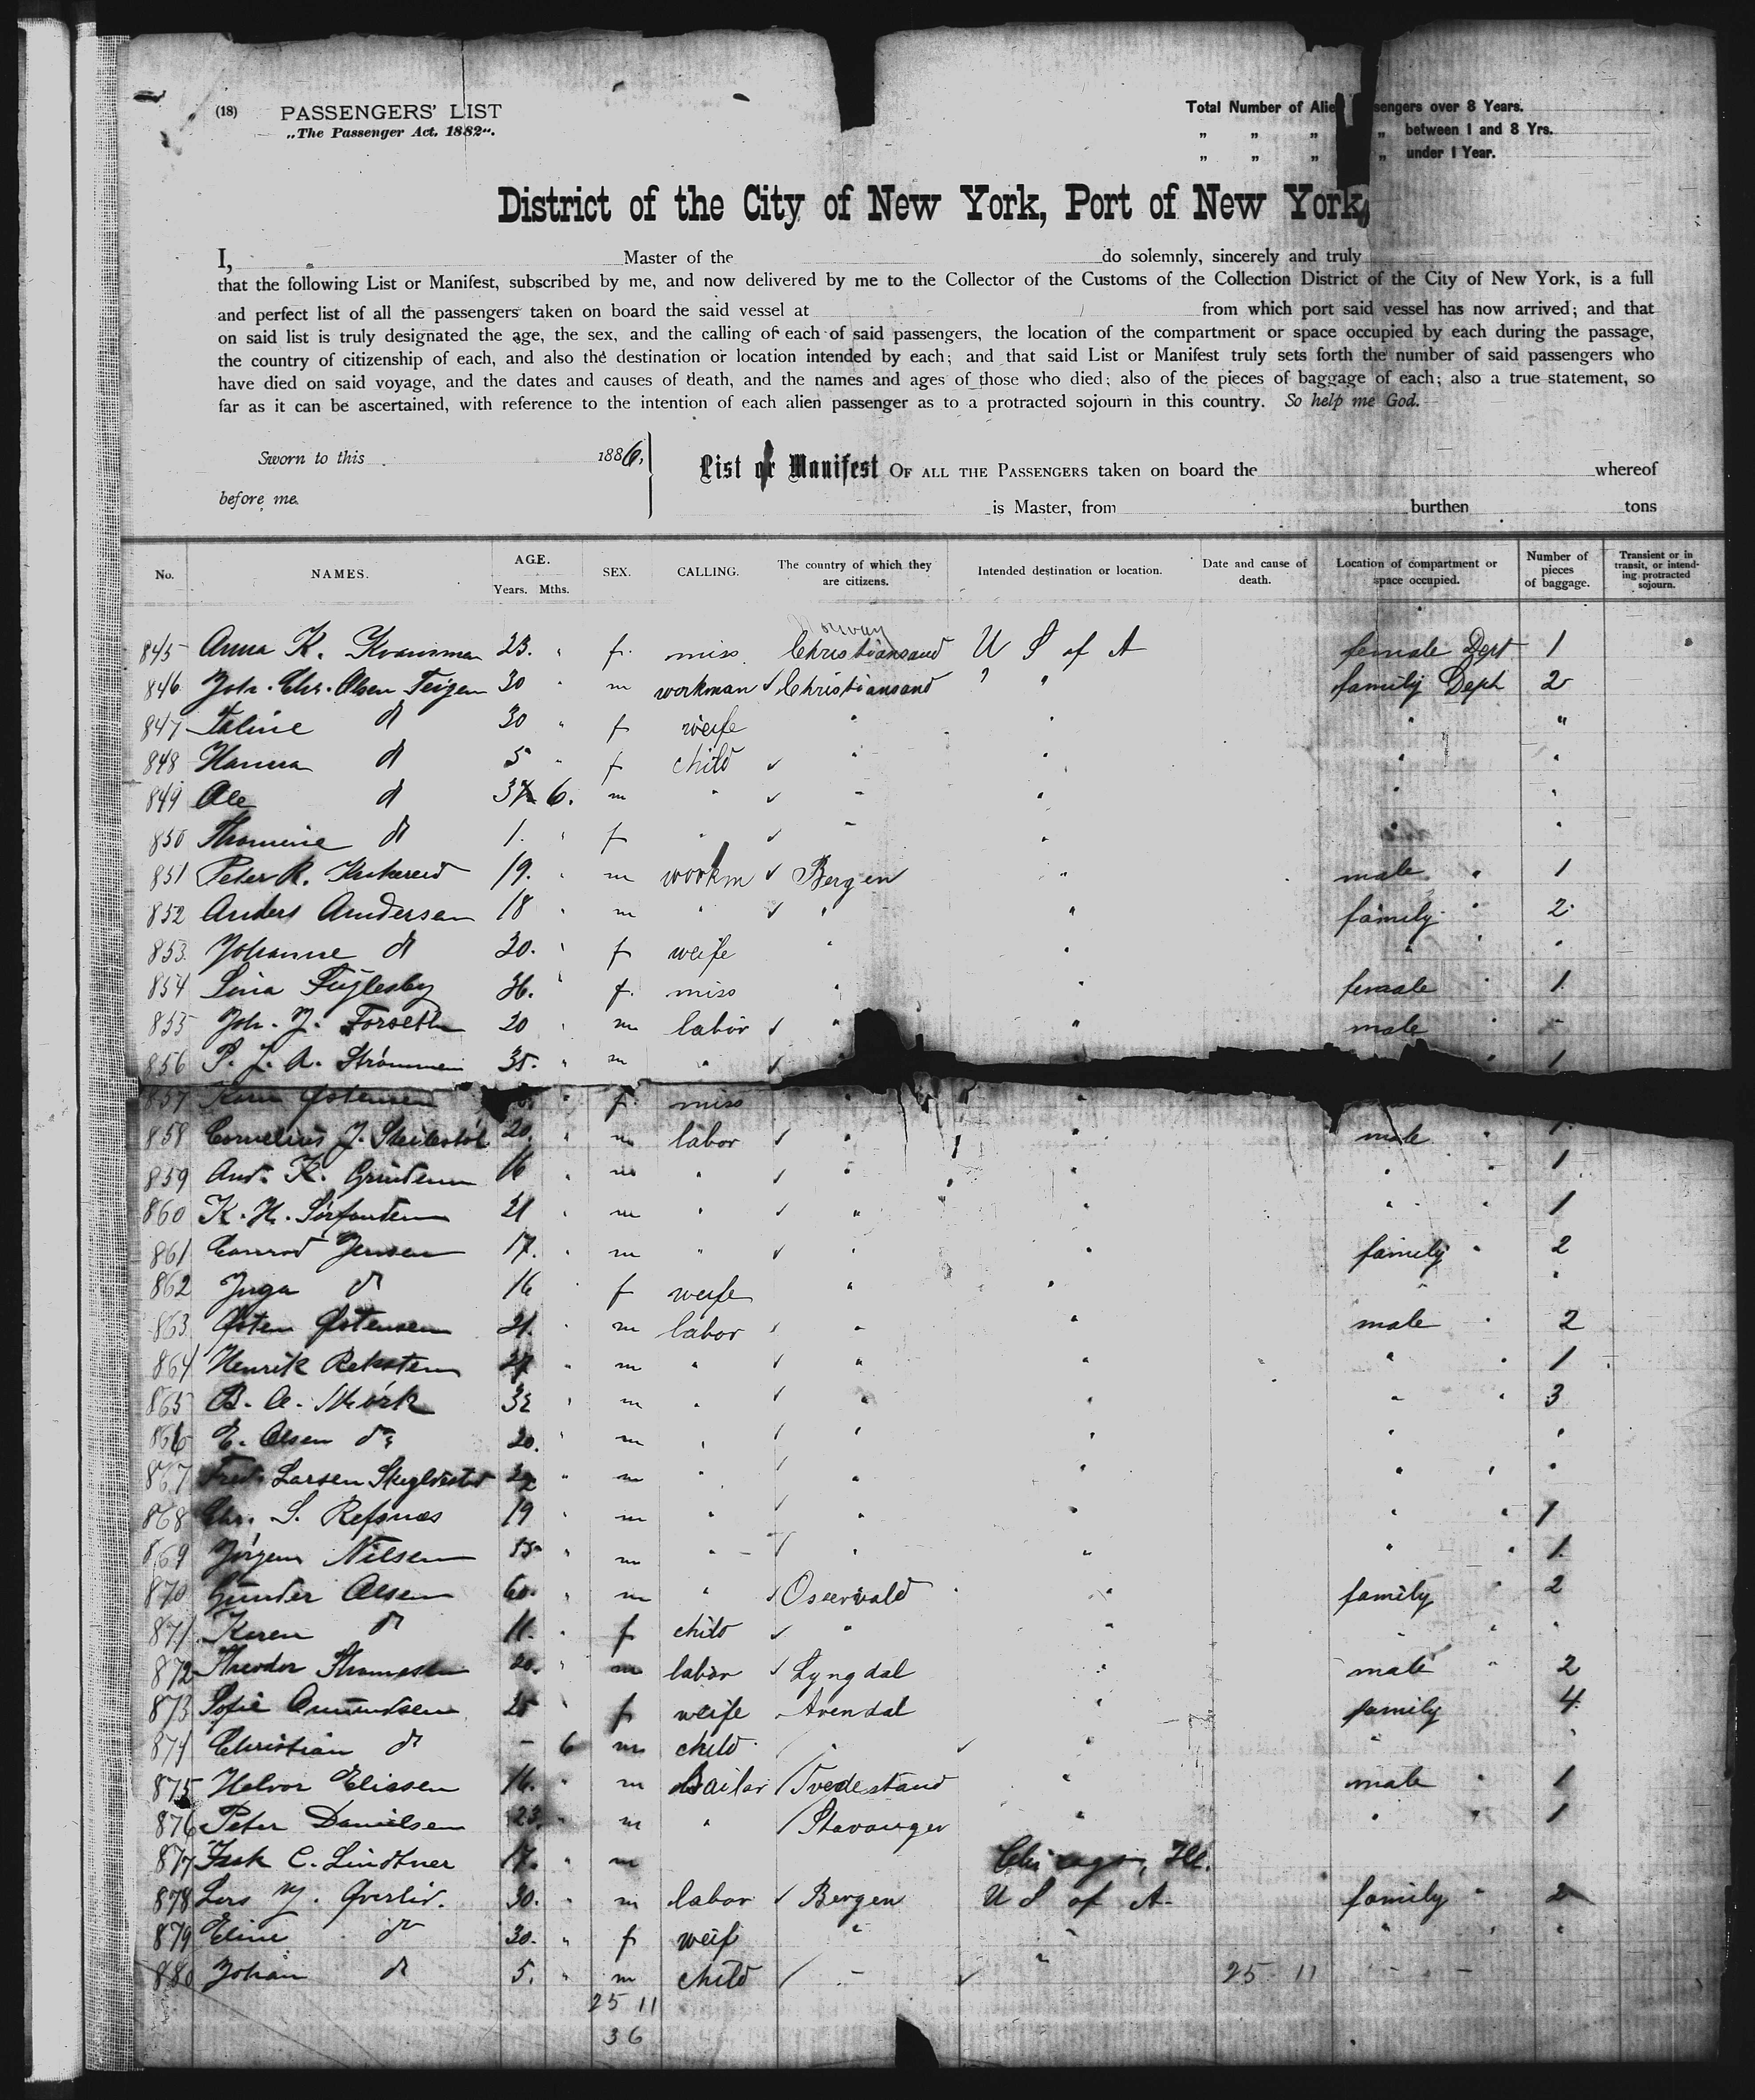 (18) PASSENGERS' LIST
„The Passenger Act. 1882“.
Total Number of Alie sengers over 8 Years.
„ „ „ „ between 1 and 8 Yrs.
„ „ „ „ under 1 Year.
District of the City of New York, Port of New York,
I, Master of the do solemnly, sincerely and truly
that the following List or Manifest, subscribed by me, and now delivered by me to the Collector of the Customs of the Collection District of the City of New York, is a full
and perfect list of all the passengers taken on board the said vessel at from which port said vessel has now arrived; and that
on said list is truly designated the age, the sex, and the calling of each of said passengers, the location of the compartment or space occupied by each during the passage,
the country of citizenship of each, and also the destination or location intended by each; and that said List or Manifest truly sets forth the number of said passengers who
have died on said voyage, and the dates and causes of death, and the names and ages of those who died; also of the pieces of baggage of each; also a true statement, so
far as it can be ascertained, with reference to the intention of each alien passenger as to a protracted sojourn in this country. So help me God.
Sworn to this 1886,
before me.
List or Manifest OF ALL THE PASSENGERS taken on board the whereof
is Master, from burthen tons
No. NAMES. AGE. Years. Mths. SEX. CALLING. The country of which they are citizens. Intended destination or location. Date and cause of death. Location of compartment or space occupied. Number of pieces of baggage. Transient or in transit, or intending protracted sojourn.
Norway
845 Anna K. 23. " f. miss. Christiansand U S of A female Dept 1
846 Joh. Chr. Olsen Teigen 30 " m workman ✓ Christiansand " " family Dept 2
847 Taline d 30 " f weife " " " "
848 Hanna d 5 " f child ✓ " " " "
849 Ole d 3 6. m " ✓ " " " "
850 Thomine d 1. " f " ✓ " " " "
851 Peter R. 19. " m workm ✓ Bergen " male " 1
852 Anders Andersen 18 " m " ✓ " " family " 2
853 Johanne d 20. " f weife " " " " "
854 Lina Fuglesby " f. miss " " female " 1
855 Joh. J. Forseth 20 " m labor ✓ " " male "
856 P. J. A. Strømmen 35. " m " ✓ " 1
857 Østensen " f. miss " "
858 Cornelius J. 20. " m labor ✓ " " male " 1
859 And. K. 16 " m " ✓ " " " " 1
860 K. H. 21 " m " ✓ " " " " 1
861 Conrad Jensen 17. " m " ✓ " " family " 2
862 Inga d 16 " f weife " " " "
863 Østen Østensen 21. " m labor " " " male " 2
864 Henrik Reksten " m " ✓ " " " " 1
865 B. A. Mørk 32 " m " ✓ " " " " 3
866 E. Olsen do 20. " m " ✓ " " " "
867 Fred. Larsen " m " ✓ " " " " "
868 Chr. S. Refsnæs 19 " m " ✓ " " " " 1
869 Jörgen Nilsen " m " ✓ " " " " 1.
870 Gunder Olsen 60. " m " ✓ family " 2
871 Karen d 11. " f child ✓ " " " " "
872 Theodor Thomassen 20. " m labor ✓ Lyngdal " male " 2
873 Sofie Amundsen 25 " f weife Arendal " family 4.
874 Christian d - 6 m child " ✓ " " "
875 Halvor Eliasen 16. " m Sailor / Tvedestand " male " 1
876 Peter Danielsen 23. " m " / Stavanger " " " 1
877 C. Lindtner 17. " m Chicago, Ill.
878 Lars M. Øverlid. 30. " m labor ✓ Bergen U S of A. family " 2
879 Eline do 30. " f weif " " " " "
880 Johan d 5. " m child / " ✓ " 25 11
25 11
36